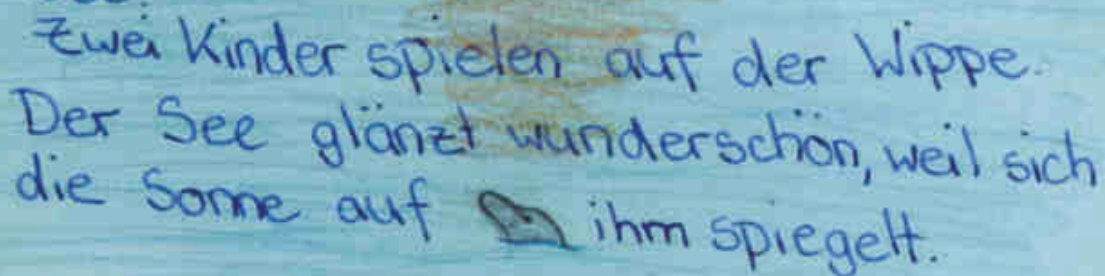 Zwei Kinder spielen auf der Wippe.
Der See glänzt wunderschön, weil sich
die Sonne auf ihm spiegelt.